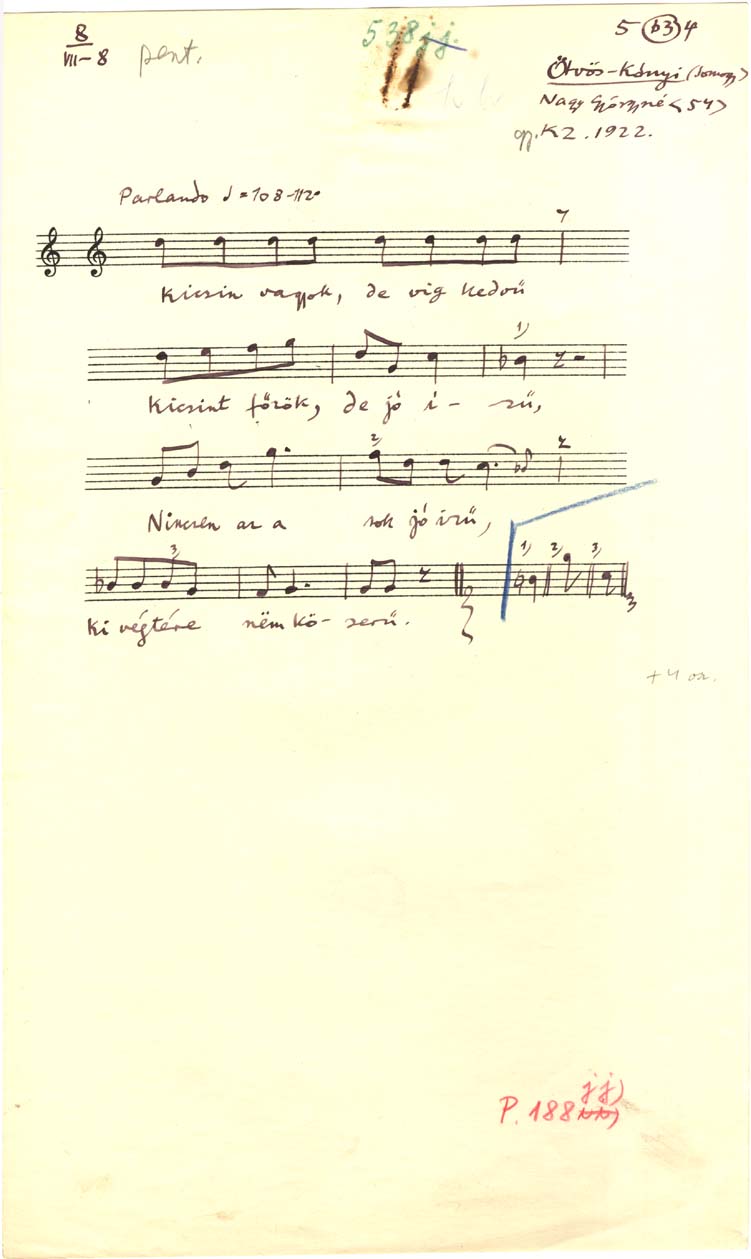 8
VII-8
pent.
538jj.
5 (b3) 4
Ötvös-Kónyi (Somogy)
Nagy Györgyné <54>
gy. KZ. 1922.
Parlando ♩=108-112
Kicsin vagyok, de vig kedvű
Kicsint főzök, de jó í-zű,
1)
Nincsen az a sok jó izű,
2)
Ki végtére nëm kö-serű.
3)
1) 2) 3)
P. 188 jj)